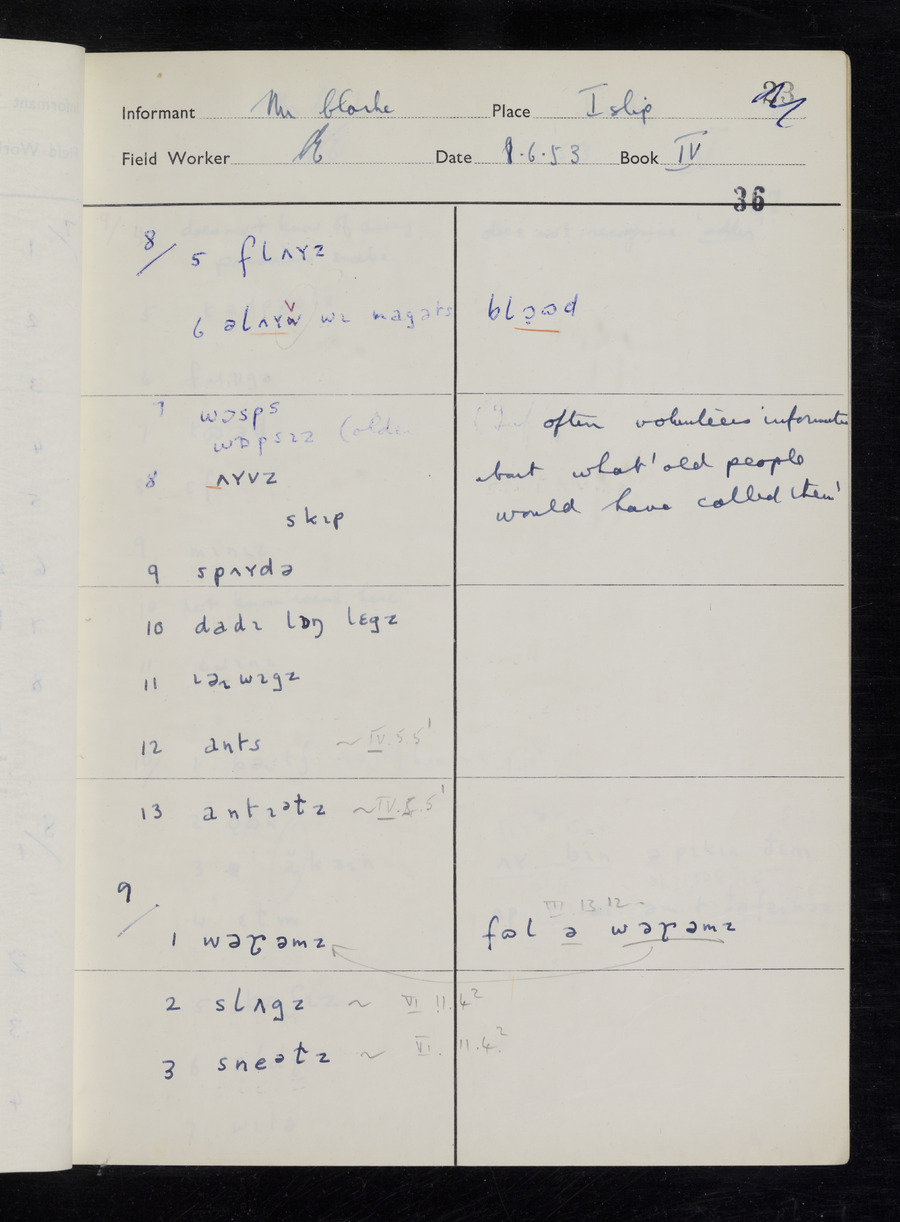 Informant Mr Place Islip
Field Worker Date 8.6.53 Book IV
36
8/ 5 flʌɪz
6 əlʌɪv wɪ magəts
blɔ̣ɷd
7 wɔsps
wɒpsɪz (older
often volunteers information
about what 'old people
would have called them'
8 ʌɪvz
skɪp
9 spʌɪdə
10 dadɪ lɒŋ lɛgz
11 ɪəɹwɪgz
12 ants ~ IV.5.5¹
13 antɪətz ~ IV.5.5¹
9/
III 13.12
1 wəɽəmz
fɷl ə wəɽəmz
2 slʌgz ~ VI 11.4²
3 sneətz ~ VI. 11.4²